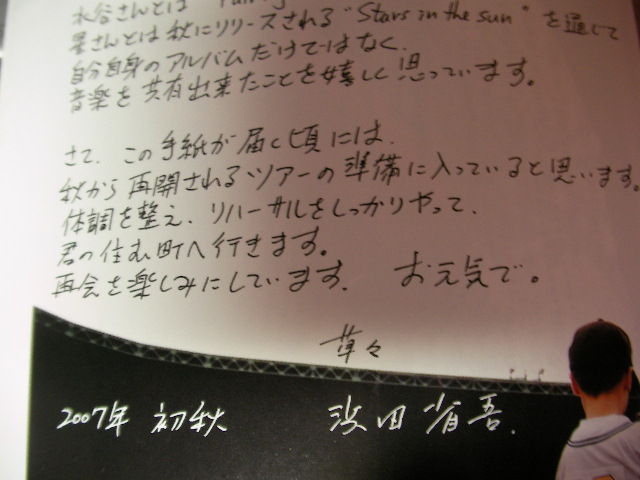 水谷さんとは
昴さんとは秋にリリースされる"Stars in the sun"を通して
自分自身のアルバムだけではなく、
音楽を共有出来たことを嬉しく思っています。
さて、この手紙が届く頃には、
秋から再開されるツアーの準備に入っていると思います。
体調を整え、リハーサルをしっかりやって、
君の住む町へ行きます。
再会を楽しみにしています。 お元気で。
草々
2007年 初秋 浜田省吾.